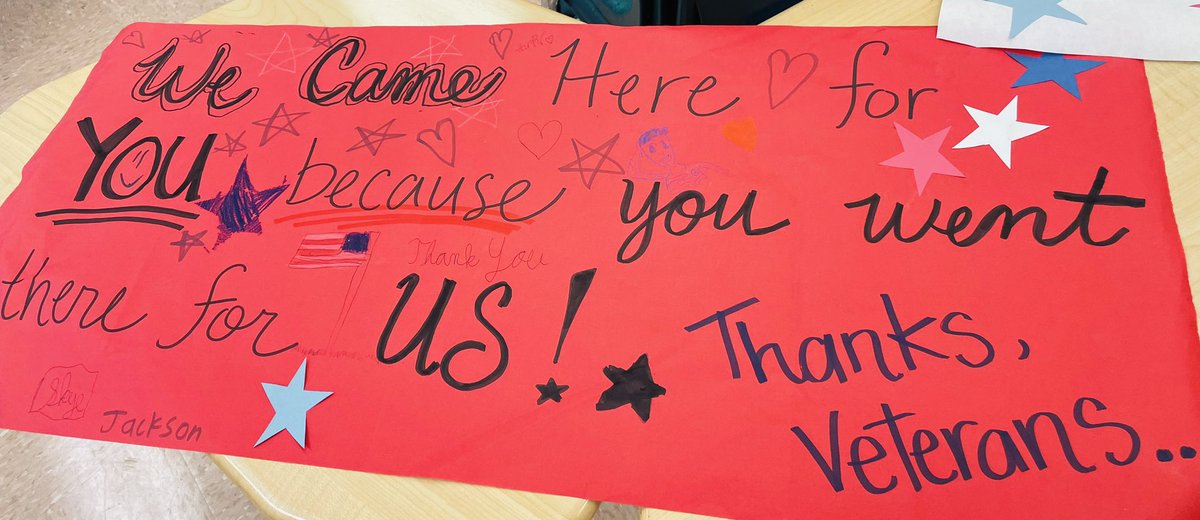 We Came Here for
You because you went
there for US!
Thank You
Thanks,
Veterans..
Skye
Jackson